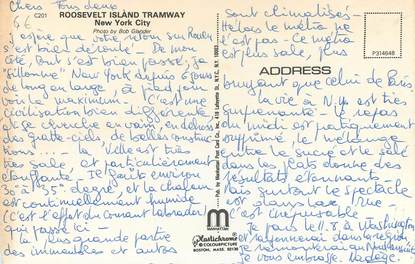 Chers Tous deux
C201
66
ROOSEVELT ISLAND TRAMWAY
New York City
Photo by Bob Glander
J'espère que votre retour sur Rouen
s'est bien déroulé - De mon
côté, tout s'est bien passé, je
"sillonne" New York depuis 8 jours
de long en large, à pied pour
voir le maximum - C'est une
civilisation bien différente
et je cherche en vain, en dehors
des gratte-ciels de belles construc
tions - La ville est très
très sale, et particulièrement
étouffante, Il fait environ
30° à 35° degrés et la chaleur
est continuellement humide
(c'est l'effet du courant labrador
qui passe ici -
La plus grande partie
des immeubles et autos
sont climatisés -
Hélas le métro ne
l'est pas - Ce métro
est plus sale, plus
bruyant que celui de Paris
la vie à N.Y est très
surprenante - le repas
du midi est pratiquement
supprimé, le mélange
entre le sucré et le salé
dans les plats donne des
résultats étonnants -
Mais surtout le spectacle
est dans la rue
c'est inépuisable -
Je pars le 11.8 à Washington
je vous embrasse. Nadège
P314648
ADDRESS
Pub. by Manhattan Post Card Co. Inc. 419 Lafayette St., NYC, N.Y. 10003
MANHATTAN
Plastichrome
® COLOURPICTURE
BOSTON, MASS. 02130